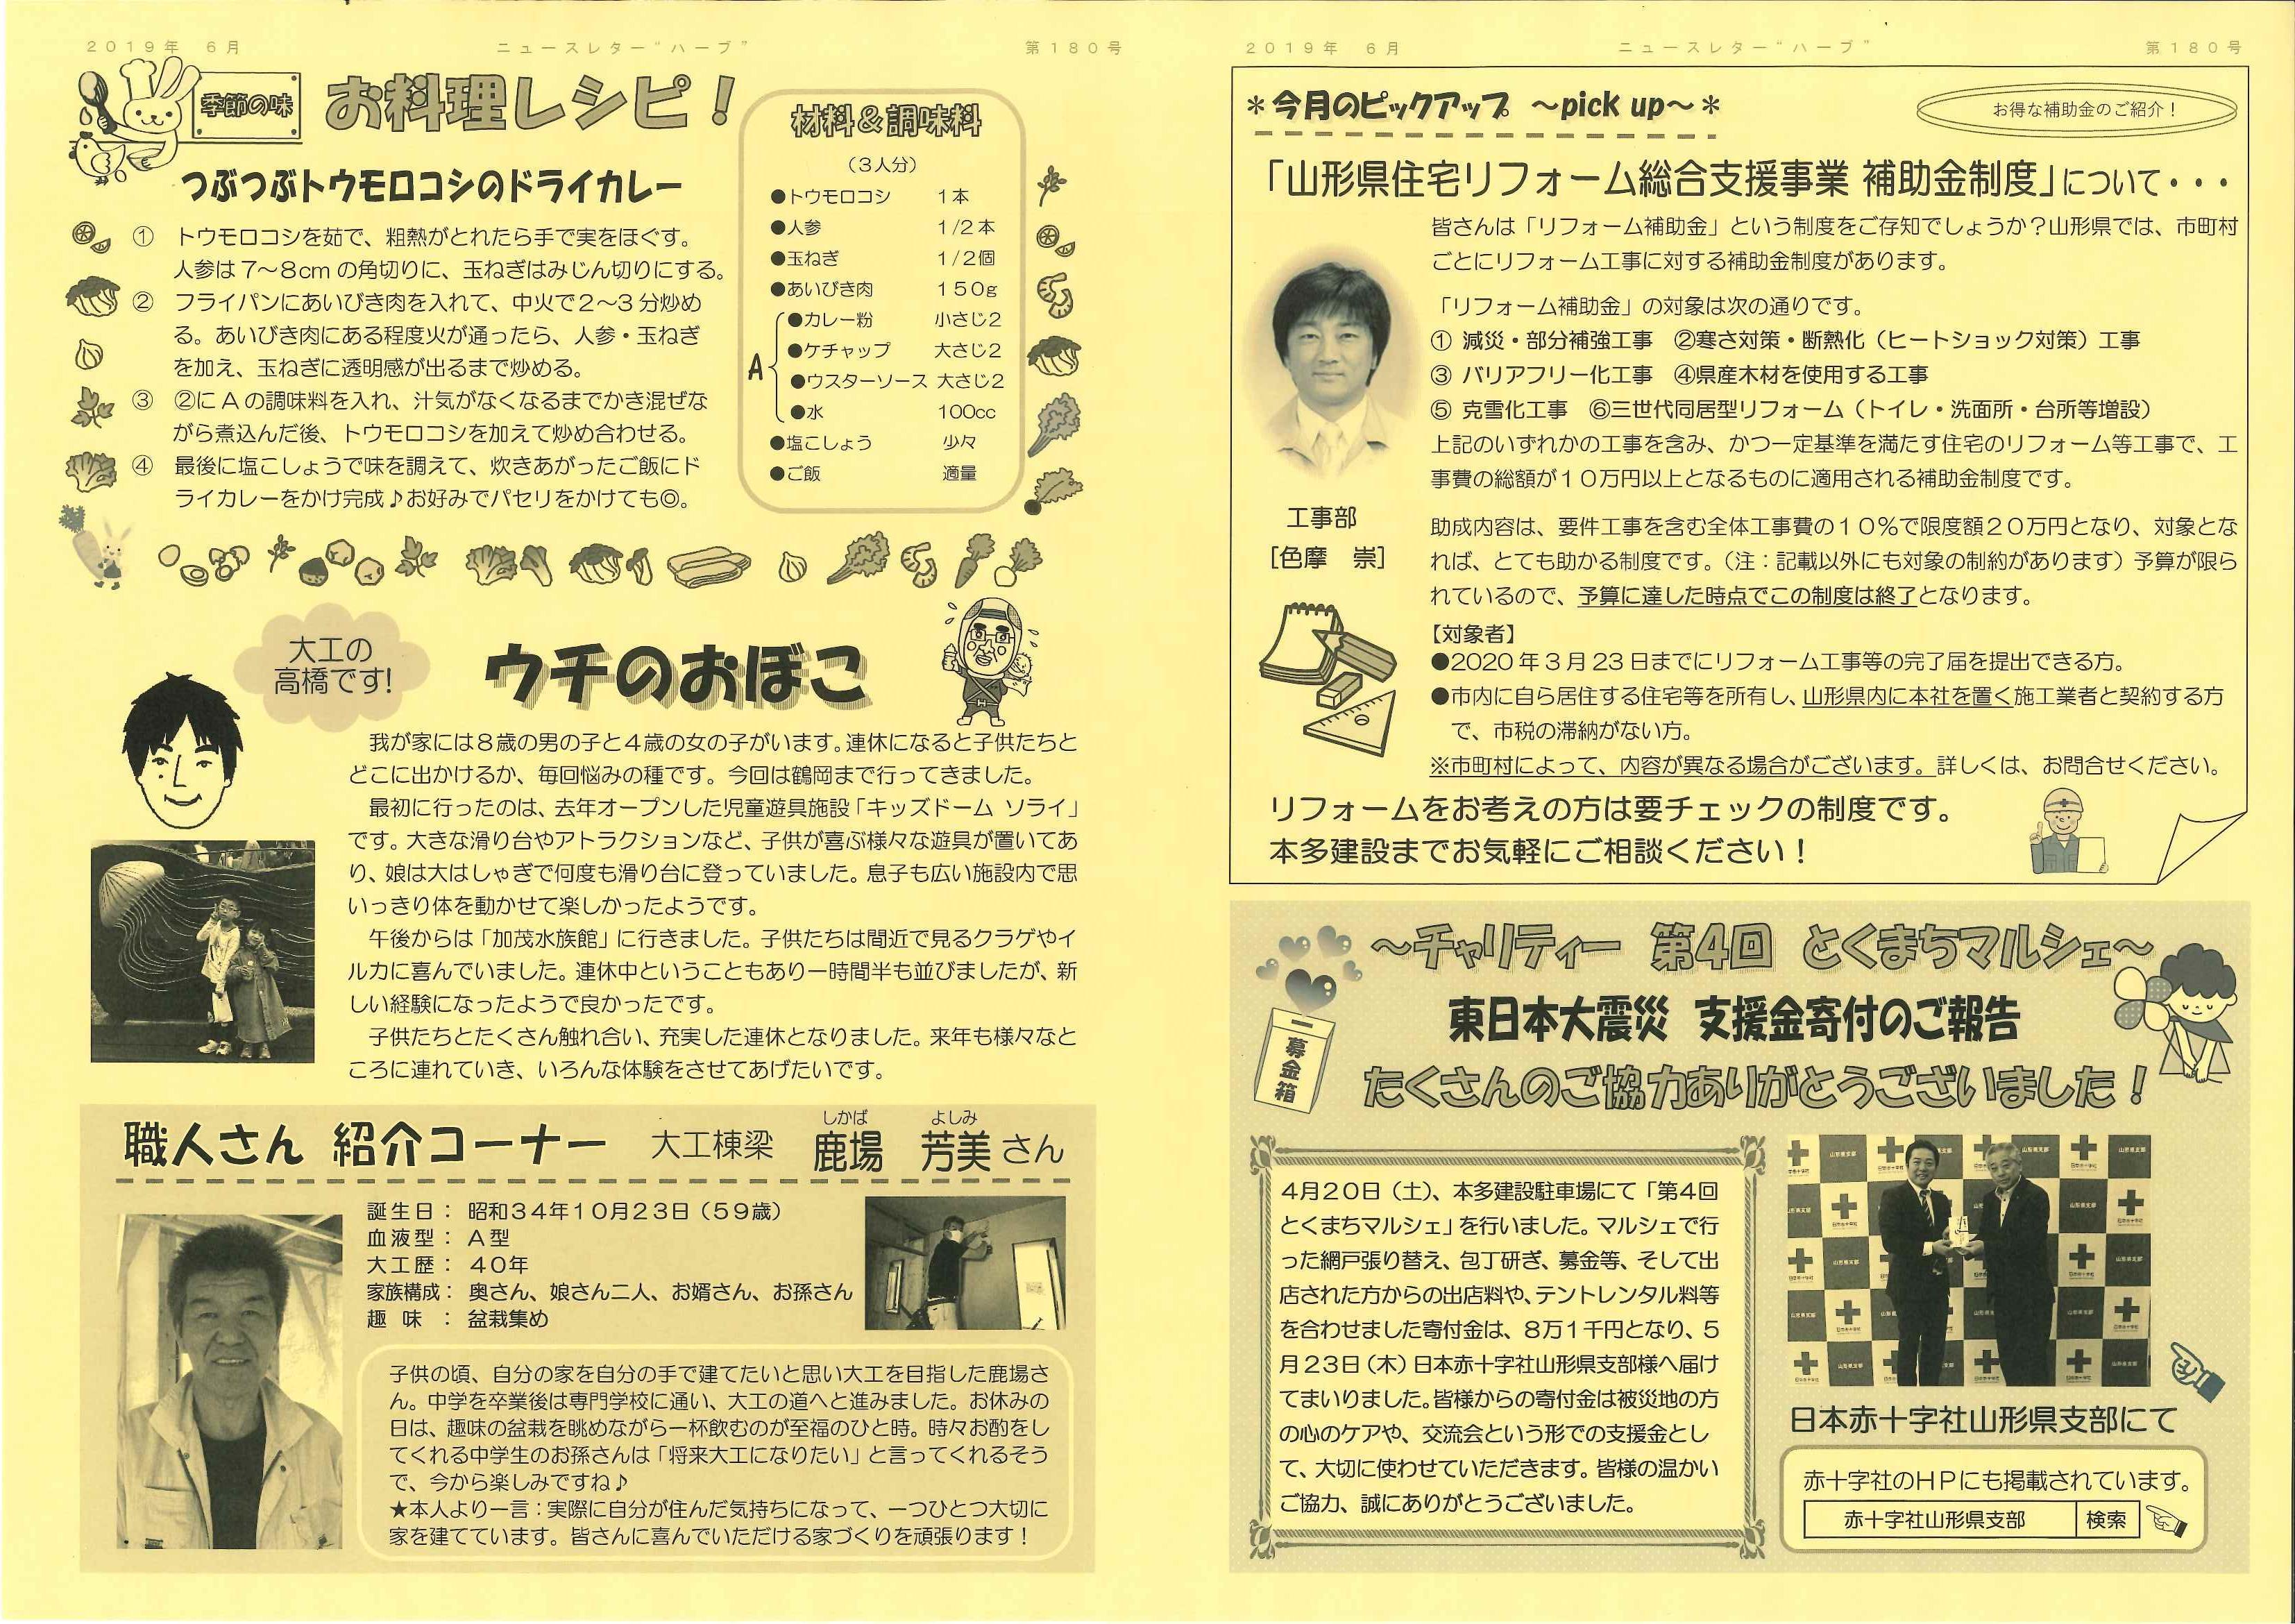 2019年 6月 ニュースレター“ハーブ” 第180号
季節の味
お料理レシピ！
つぶつぶトウモロコシのドライカレー
① トウモロコシを茹で、粗熱がとれたら手で実をほぐす。
人参は7～8cmの角切りに、玉ねぎはみじん切りにする。
② フライパンにあいびき肉を入れて、中火で2～3分炒め
る。あいびき肉にある程度火が通ったら、人参・玉ねぎ
を加え、玉ねぎに透明感が出るまで炒める。
③ ②にAの調味料を入れ、汁気がなくなるまでかき混ぜな
がら煮込んだ後、トウモロコシを加えて炒め合わせる。
④ 最後に塩こしょうで味を調えて、炊きあがったご飯にド
ライカレーをかけ完成♪お好みでパセリをかけても◎。
材料＆調味料
（3人分）
●トウモロコシ 1本
●人参 1/2本
●玉ねぎ 1/2個
●あいびき肉 150g
A
●カレー粉 小さじ2
●ケチャップ 大さじ2
●ウスターソース 大さじ2
●水 100cc
●塩こしょう 少々
●ご飯 適量
大工の
高橋です!
ウチのおぼこ
我が家には8歳の男の子と4歳の女の子がいます。連休になると子供たちと
どこに出かけるか、毎回悩みの種です。今回は鶴岡まで行ってきました。
最初に行ったのは、去年オープンした児童遊具施設「キッズドーム ソライ」
です。大きな滑り台やアトラクションなど、子供が喜ぶ様々な遊具が置いてあ
り、娘は大はしゃぎで何度も滑り台に登っていました。息子も広い施設内で思
いっきり体を動かせて楽しかったようです。
午後からは「加茂水族館」に行きました。子供たちは間近で見るクラゲやイ
ルカに喜んでいました。連休中ということもあり一時間半も並びましたが、新
しい経験になったようで良かったです。
子供たちとたくさん触れ合い、充実した連休となりました。来年も様々なと
ころに連れていき、いろんな体験をさせてあげたいです。
職人さん 紹介コーナー 大工棟梁 鹿場 芳美さん
しかば よしみ
誕生日： 昭和34年10月23日（59歳）
血液型： A型
大工歴： 40年
家族構成： 奥さん、娘さん二人、お婿さん、お孫さん
趣 味 ： 盆栽集め
子供の頃、自分の家を自分の手で建てたいと思い大工を目指した鹿場さ
ん。中学を卒業後は専門学校に通い、大工の道へと進みました。お休みの
日は、趣味の盆栽を眺めながら一杯飲むのが至福のひと時。時々お酌をし
てくれる中学生のお孫さんは「将来大工になりたい」と言ってくれるそう
で、今から楽しみですね♪
★本人より一言：実際に自分が住んだ気持ちになって、一つひとつ大切に
家を建てています。皆さんに喜んでいただける家づくりを頑張ります！
2019年 6月 ニュースレター“ハーブ” 第180号
＊今月のピックアップ ～pick up～＊
お得な補助金のご紹介！
「山形県住宅リフォーム総合支援事業 補助金制度」について・・・
皆さんは「リフォーム補助金」という制度をご存知でしょうか？山形県では、市町村
ごとにリフォーム工事に対する補助金制度があります。
「リフォーム補助金」の対象は次の通りです。
① 減災・部分補強工事 ②寒さ対策・断熱化（ヒートショック対策）工事
③ バリアフリー化工事 ④県産木材を使用する工事
⑤ 克雪化工事 ⑥三世代同居型リフォーム（トイレ・洗面所・台所等増設）
上記のいずれかの工事を含み、かつ一定基準を満たす住宅のリフォーム等工事で、工
事費の総額が10万円以上となるものに適用される補助金制度です。
工事部
[色摩 崇]
助成内容は、要件工事を含む全体工事費の10％で限度額20万円となり、対象とな
れば、とても助かる制度です。（注：記載以外にも対象の制約があります）予算が限ら
れているので、予算に達した時点でこの制度は終了となります。
【対象者】
●2020年3月23日までにリフォーム工事等の完了届を提出できる方。
●市内に自ら居住する住宅等を所有し、山形県内に本社を置く施工業者と契約する方
で、市税の滞納がない方。
※市町村によって、内容が異なる場合がございます。詳しくは、お問合せください。
リフォームをお考えの方は要チェックの制度です。
本多建設までお気軽にご相談ください！
～チャリティー 第4回 とくまちマルシェ～
東日本大震災 支援金寄付のご報告
たくさんのご協力ありがとうございました！
募金箱
4月20日（土）、本多建設駐車場にて「第4回
とくまちマルシェ」を行いました。マルシェで行
った網戸張り替え、包丁研ぎ、募金等、そして出
店された方からの出店料や、テントレンタル料等
を合わせました寄付金は、8万1千円となり、5
月23日（木）日本赤十字社山形県支部様へ届け
てまいりました。皆様からの寄付金は被災地の方
の心のケアや、交流会という形での支援金とし
て、大切に使わせていただきます。皆様の温かい
ご協力、誠にありがとうございました。
日本赤十字社山形県支部にて
赤十字社のHPにも掲載されています。
赤十字社山形県支部 検索